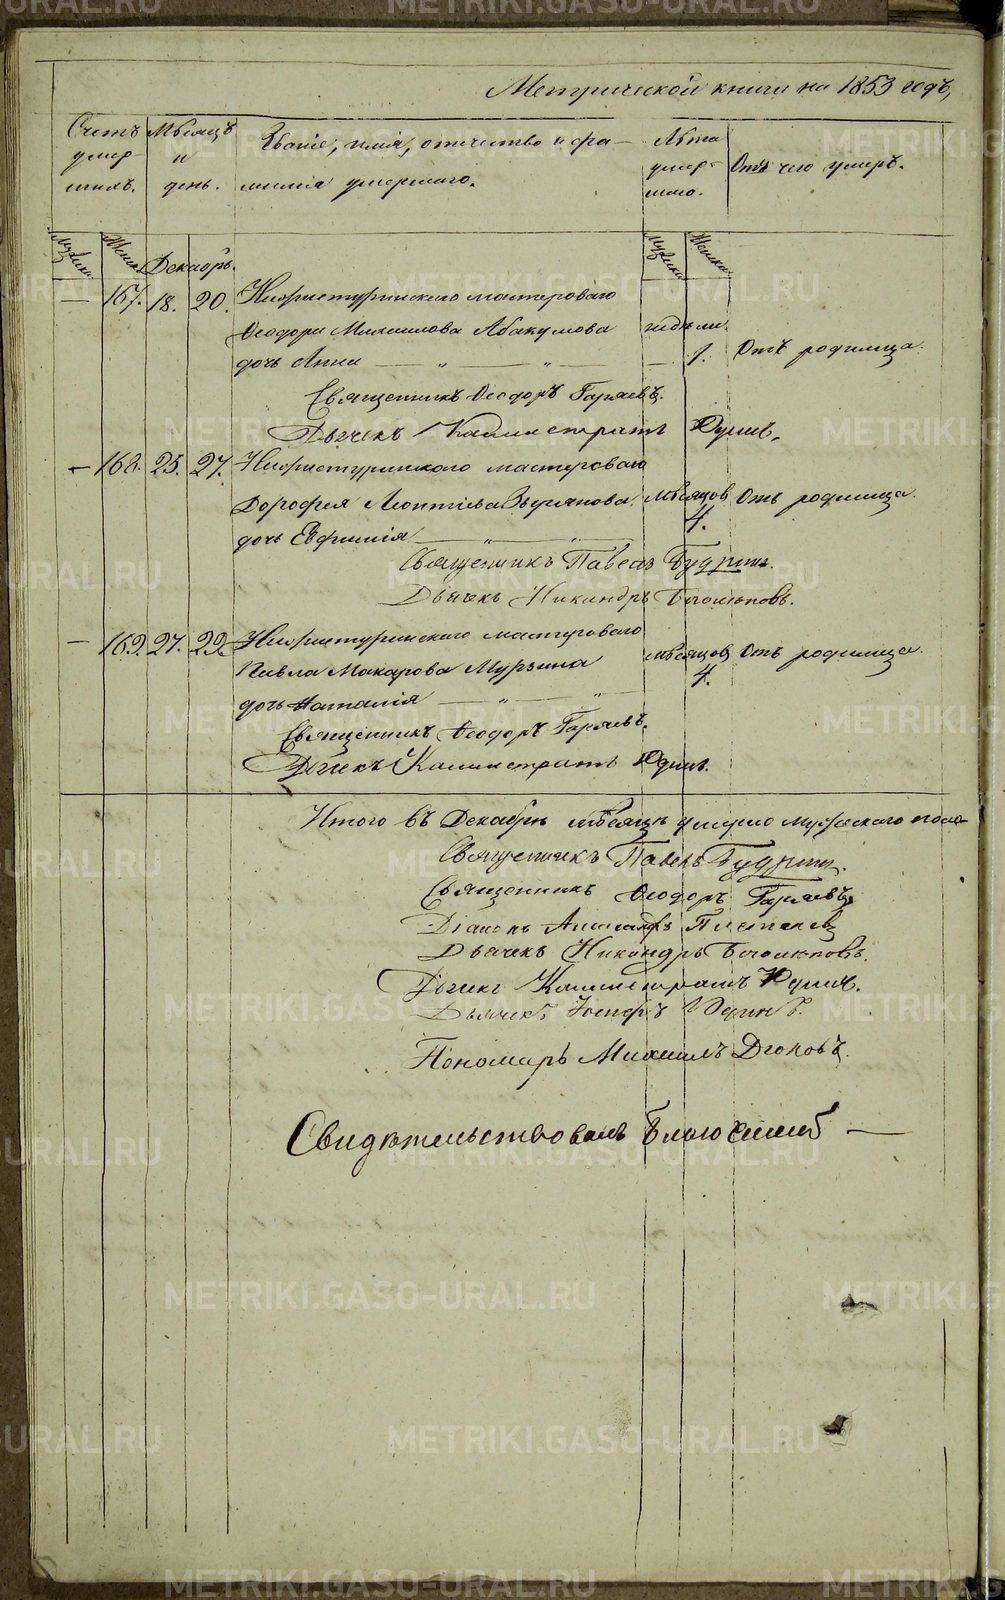 Метрической книги на 1853 годъ,
Счетъ умер- шихъ.
Мѣсяцъ и день.
Званіе, имя, отчество и фа-
милія умершаго.
Лѣта умер- шаго.
Отъ чего умеръ.
Мужска. Женска. Декабрь. Мужска. Женска.
— 167. 18. 20. Нижнетуринскаго мастероваго
Ѳеодора Михаилова Абакумова недѣли.
дочь Анна — „ — „ — 1. Отъ родимца.
Священникъ Ѳеодоръ Гаряевъ.
Дьячекъ Каллистратъ Юдинъ.
— 168. 25. 27. Нижнетуринскаго мастероваго
Дорофея Леонтіева Зырянова мѣсяцов Отъ родимца.
дочь Евфимія — „ — „ — 4.
Священникъ Павелъ Будринъ.
Дьячекъ Никандръ
— 169. 27. 29. Нижнетуринскаго мастероваго
Павла Макарова Мурзина мѣсяцов Отъ родимца.
дочь Наталія — „ — „ — 4.
Священникъ Ѳеодоръ Гаряевъ.
Дьячекъ Каллистратъ Юдинъ.
Итого въ Декабрѣ мѣсяцѣ умерло мужескаго пола
Священникъ Павелъ Будринъ.
Священникъ Ѳеодоръ Гаряевъ
Діаконъ Александръ
Дьячекъ Никандръ
Дьячекъ Каллистратъ Юдинъ.
Дьячекъ Іосифъ Юдинъ.
Пономарь Михаилъ Дягковъ.
Свидѣтельствовалъ —
METRIKI.GASO-URAL.RU